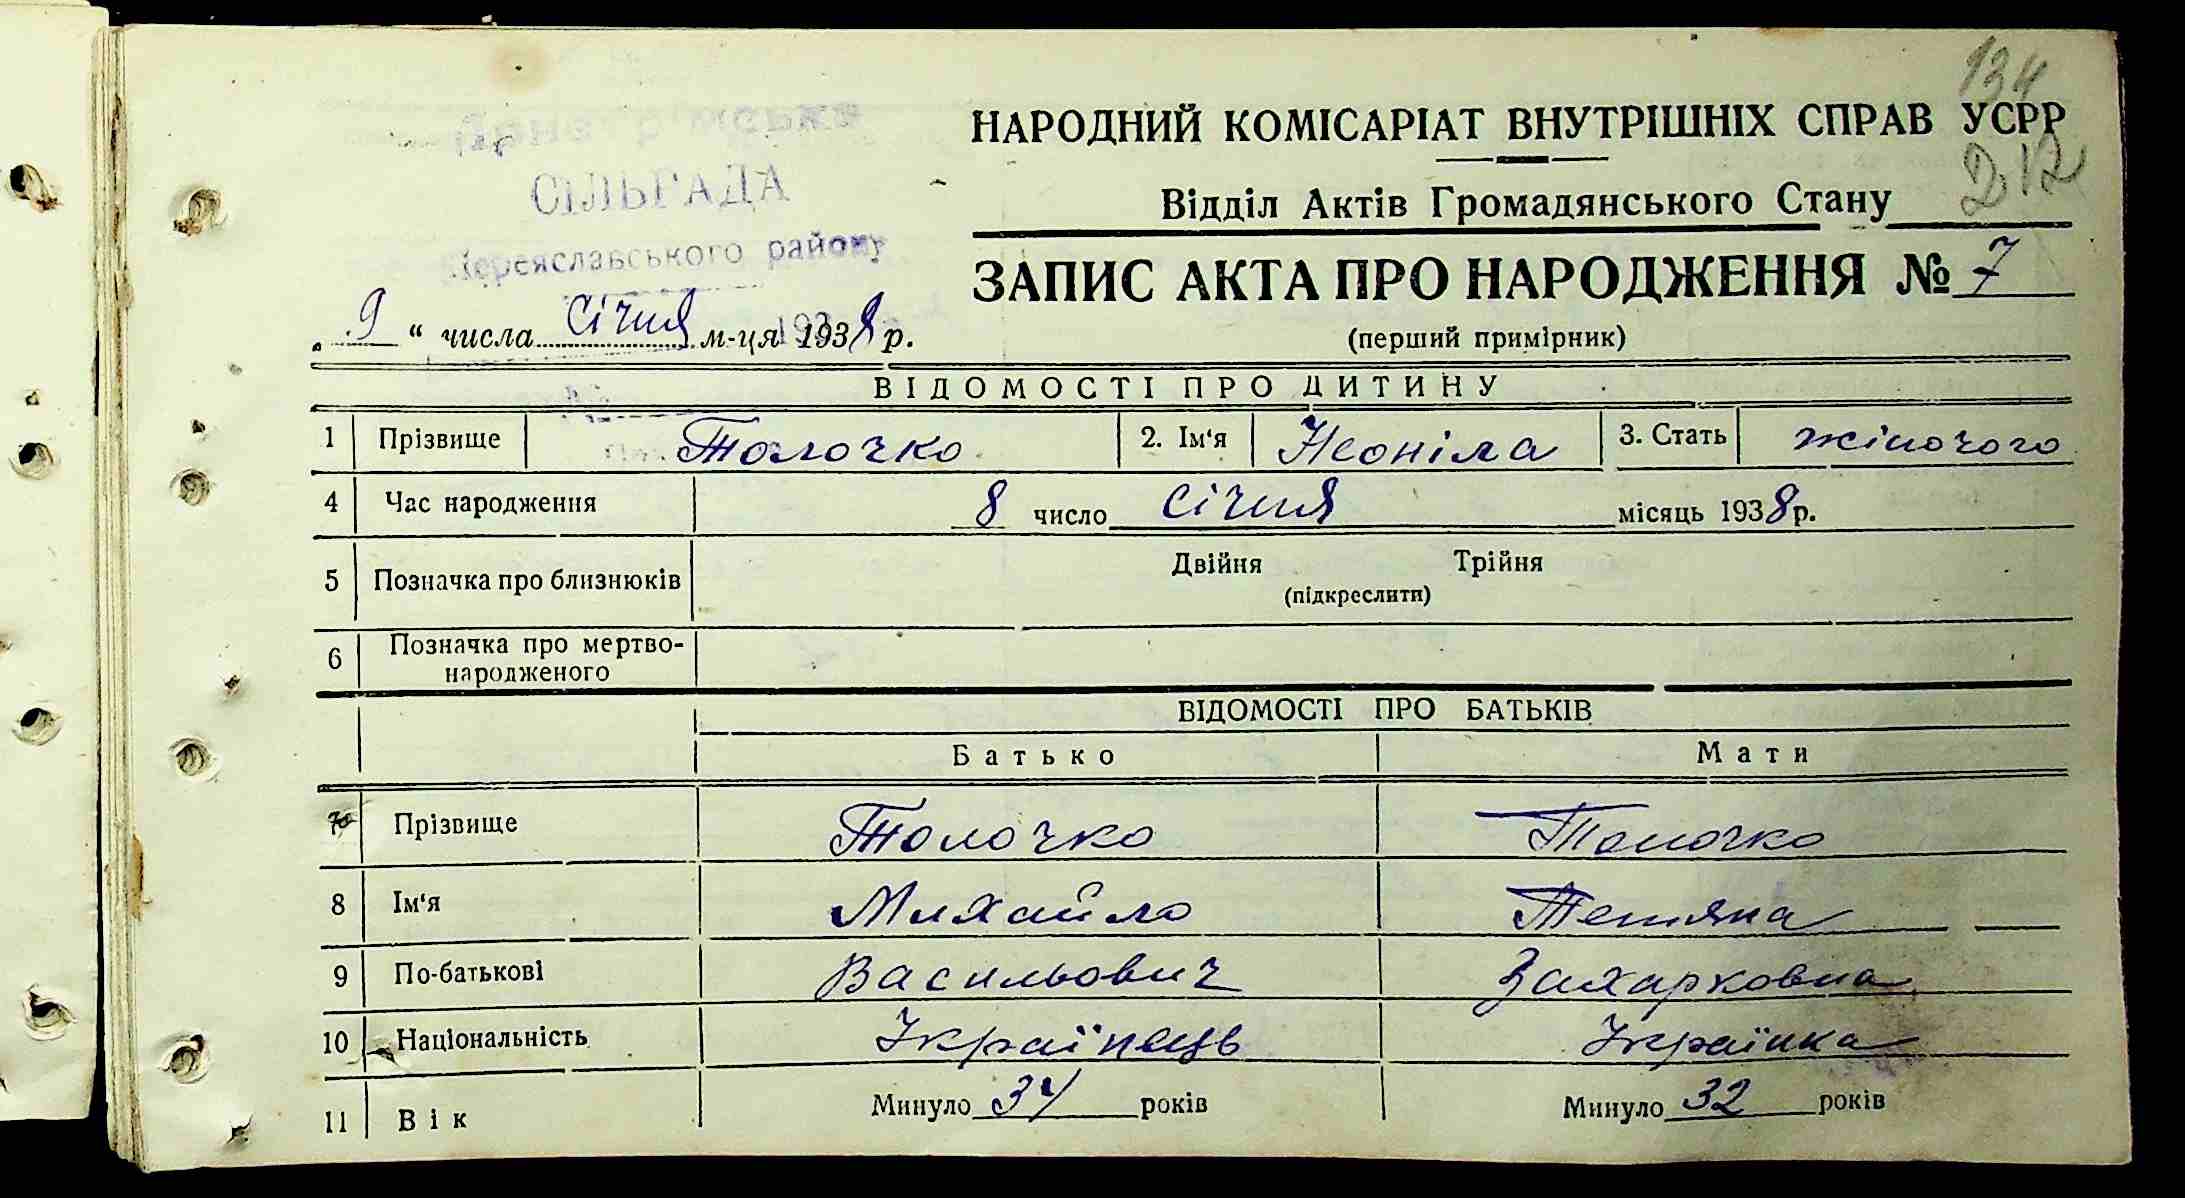 134
НАРОДНИЙ КОМІСАРІАТ ВНУТРІШНІХ СПРАВ УСРР
СІЛЬРАДА
Відділ Актів Громадянського Стану
Переяславського району
ЗАПИС АКТА ПРО НАРОДЖЕННЯ № 7
„ 9 “ числа січня м-ця 1938 р.
(перший примірник)
ВІДОМОСТІ ПРО ДИТИНУ
1 Прізвище Толочко 2. Ім'я Неоніла 3. Стать жіночого
4 Час народження 8 число січня місяць 1938 р.
5 Позначка про близнюків Двійня Трійня
(підкреслити)
6 Позначка про мертво-
народженого
ВІДОМОСТІ ПРО БАТЬКІВ
Батько Мати
7 Прізвище Толочко Толочко
8 Ім'я Михайло Тетяна
9 По-батькові Васильович Захарковна
10 Національність Українець Українка
11 Вік Минуло 34 років Минуло 32 років